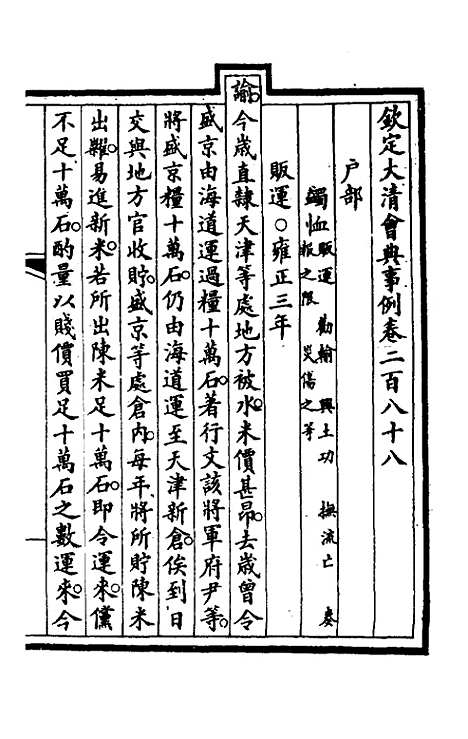 欽定大清會典事例卷二百八十八
户部
蠲恤 販運 勸輸 興土功 撫流亡 奏報之限 災傷之等
販運○雍正三年
諭。今歲直隸天津等處地方被水。米價甚昂。去歲曾令
盛京由海道運過糧十萬石。著行文該將軍府尹等。
將盛京糧十萬石。仍由海道運至天津新倉。俟到日
交與地方官收貯。盛京等處倉内。每年將所貯陳米
出糶。易進新米。若所出陳米足十萬石。即令運來。儻
不足十萬石。酌量以賤價買足十萬石之數運來。今